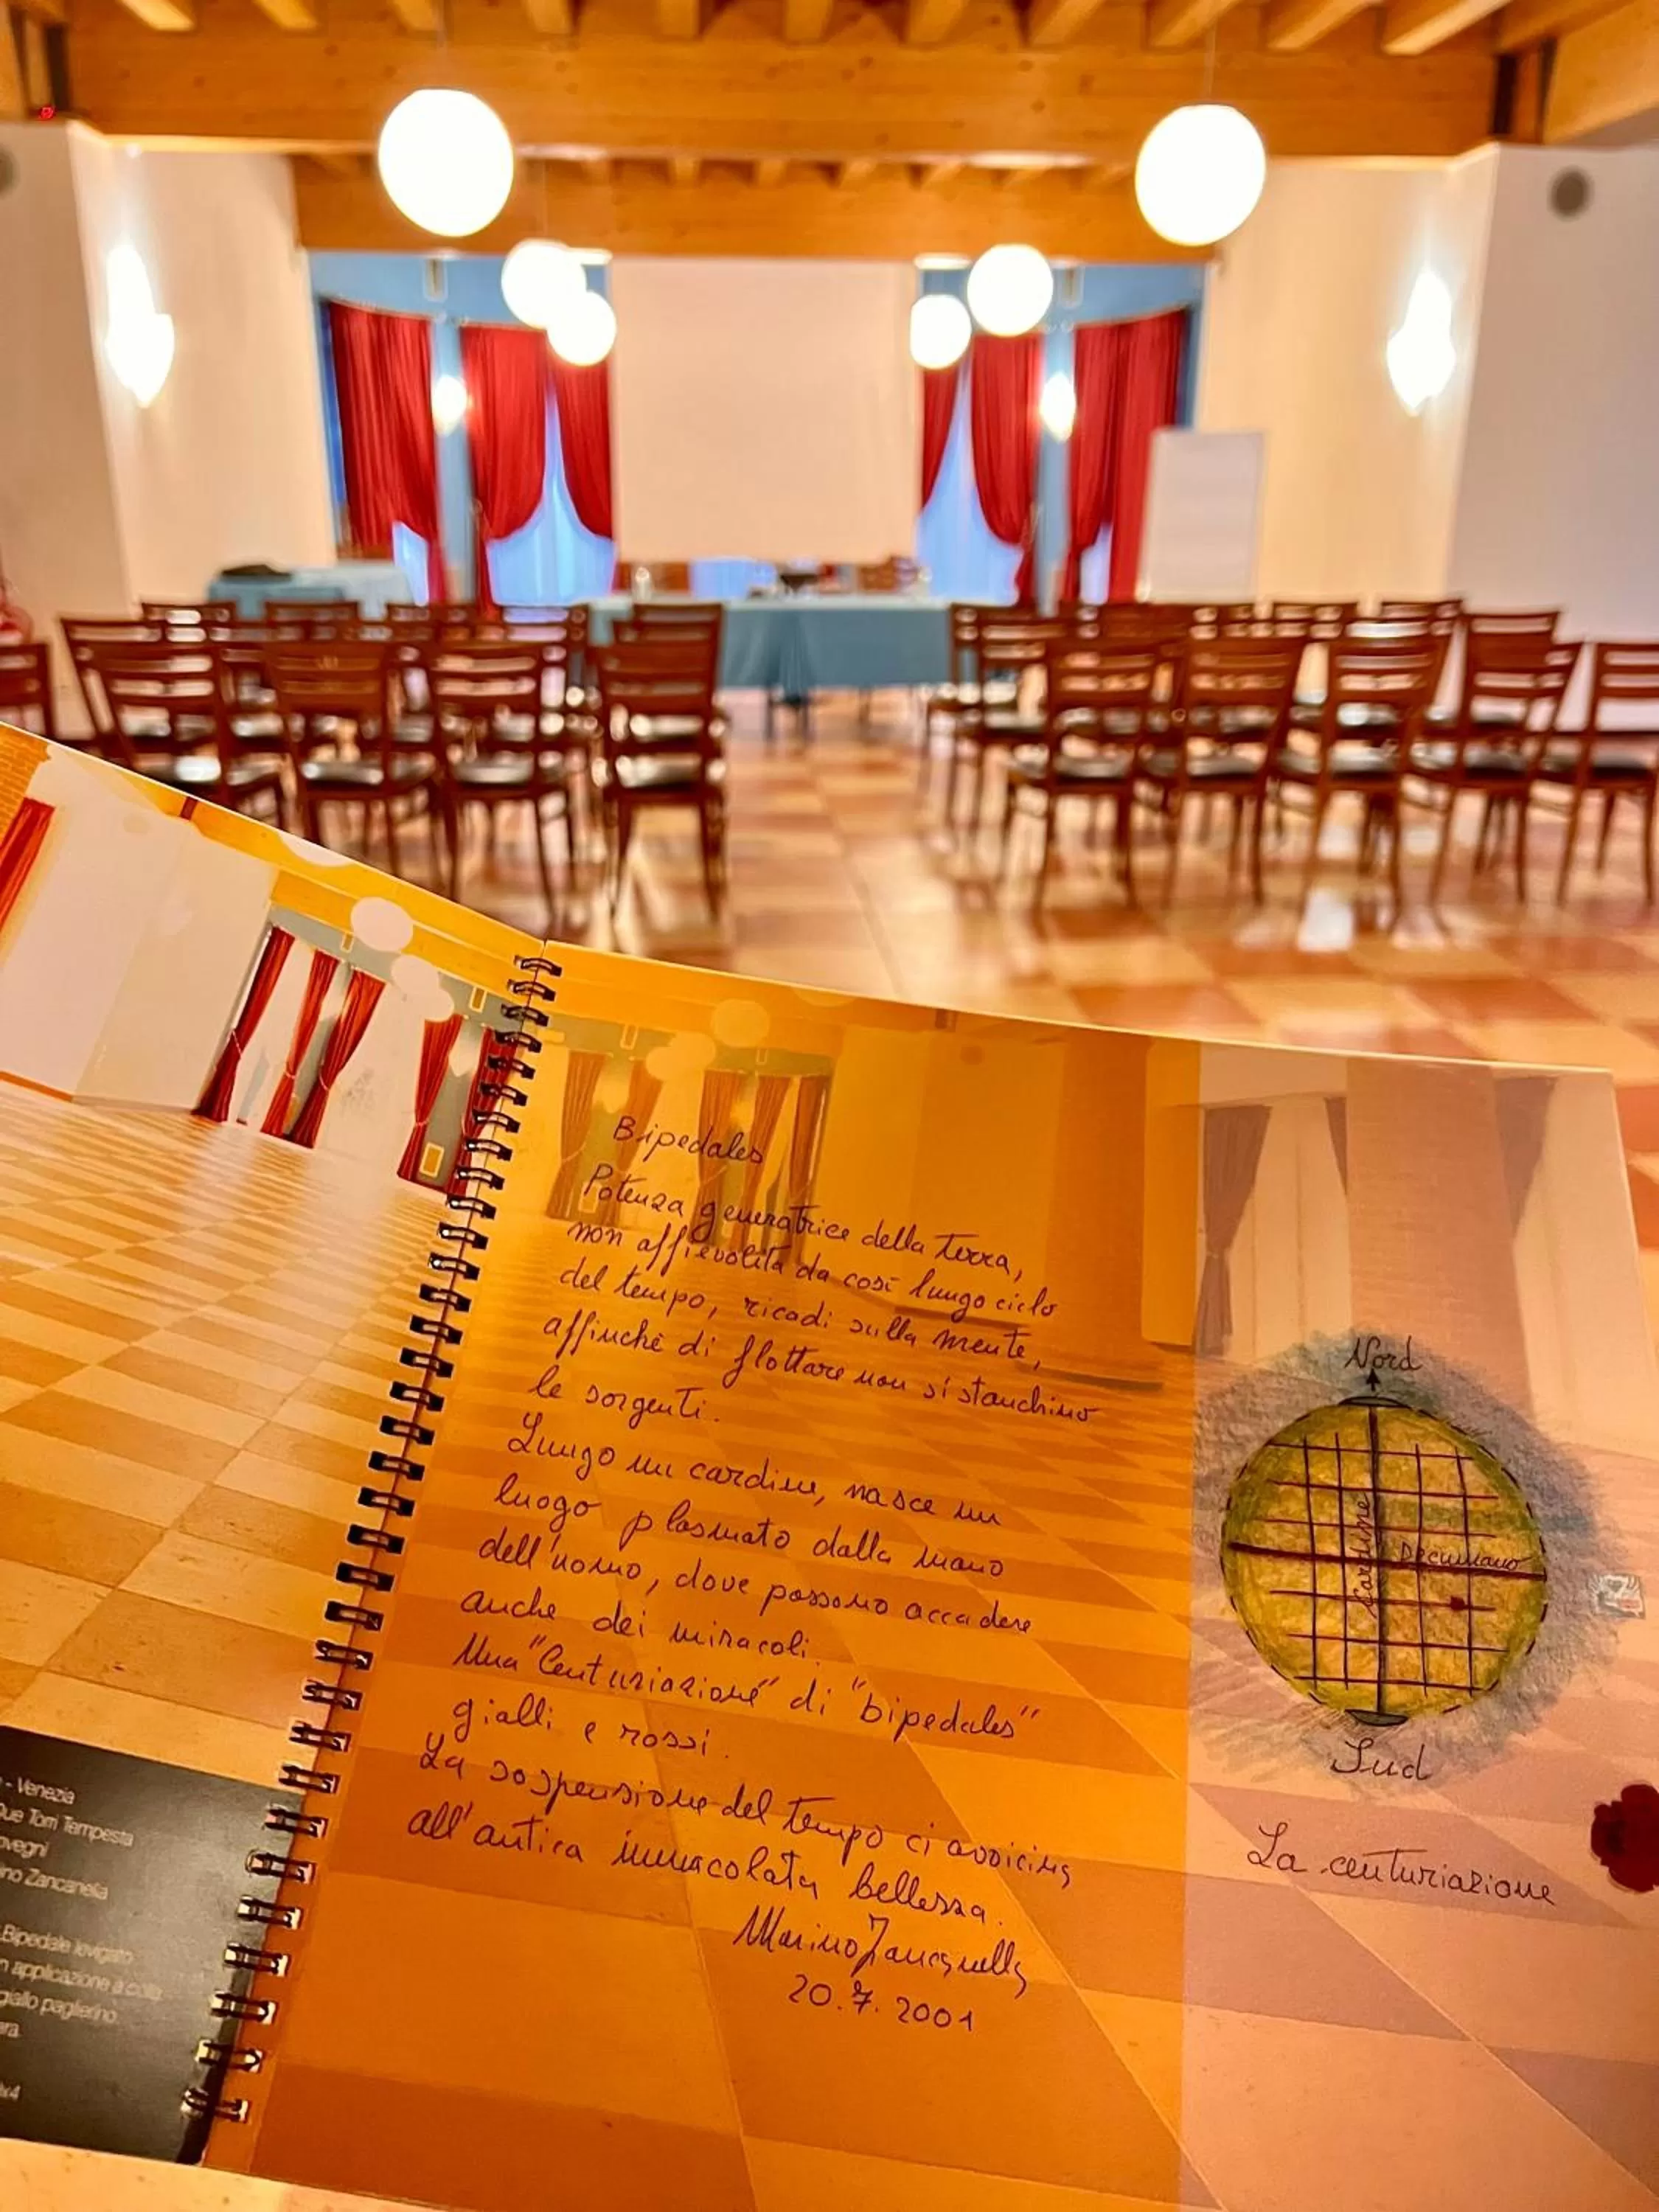 Bipedales
Potenza generatrice della terra,
non affievolita da così lungo ciclo
del tempo, ricadi sulla mente,
affinchè di flottare non si stanchino
le sorgenti.
Lungo un cardine, nasce un
luogo plasmato dalla mano
dell'uomo, dove possono accadere
anche dei miracoli.
Una "Centuriazione" di "bipedales"
gialli e rossi.
La sospensione del tempo ci avvicina
all'antica immacolata bellezza.
Marino Zancanella
20.7.2001
Nord
Cardine
Decumano
Sud
La centuriazione
- Venezia
Due Torri Tempesta
ovegni
ino Zancanella
Bipedale levigato
n applicazione a colla
giallo paglierino
ara
x4